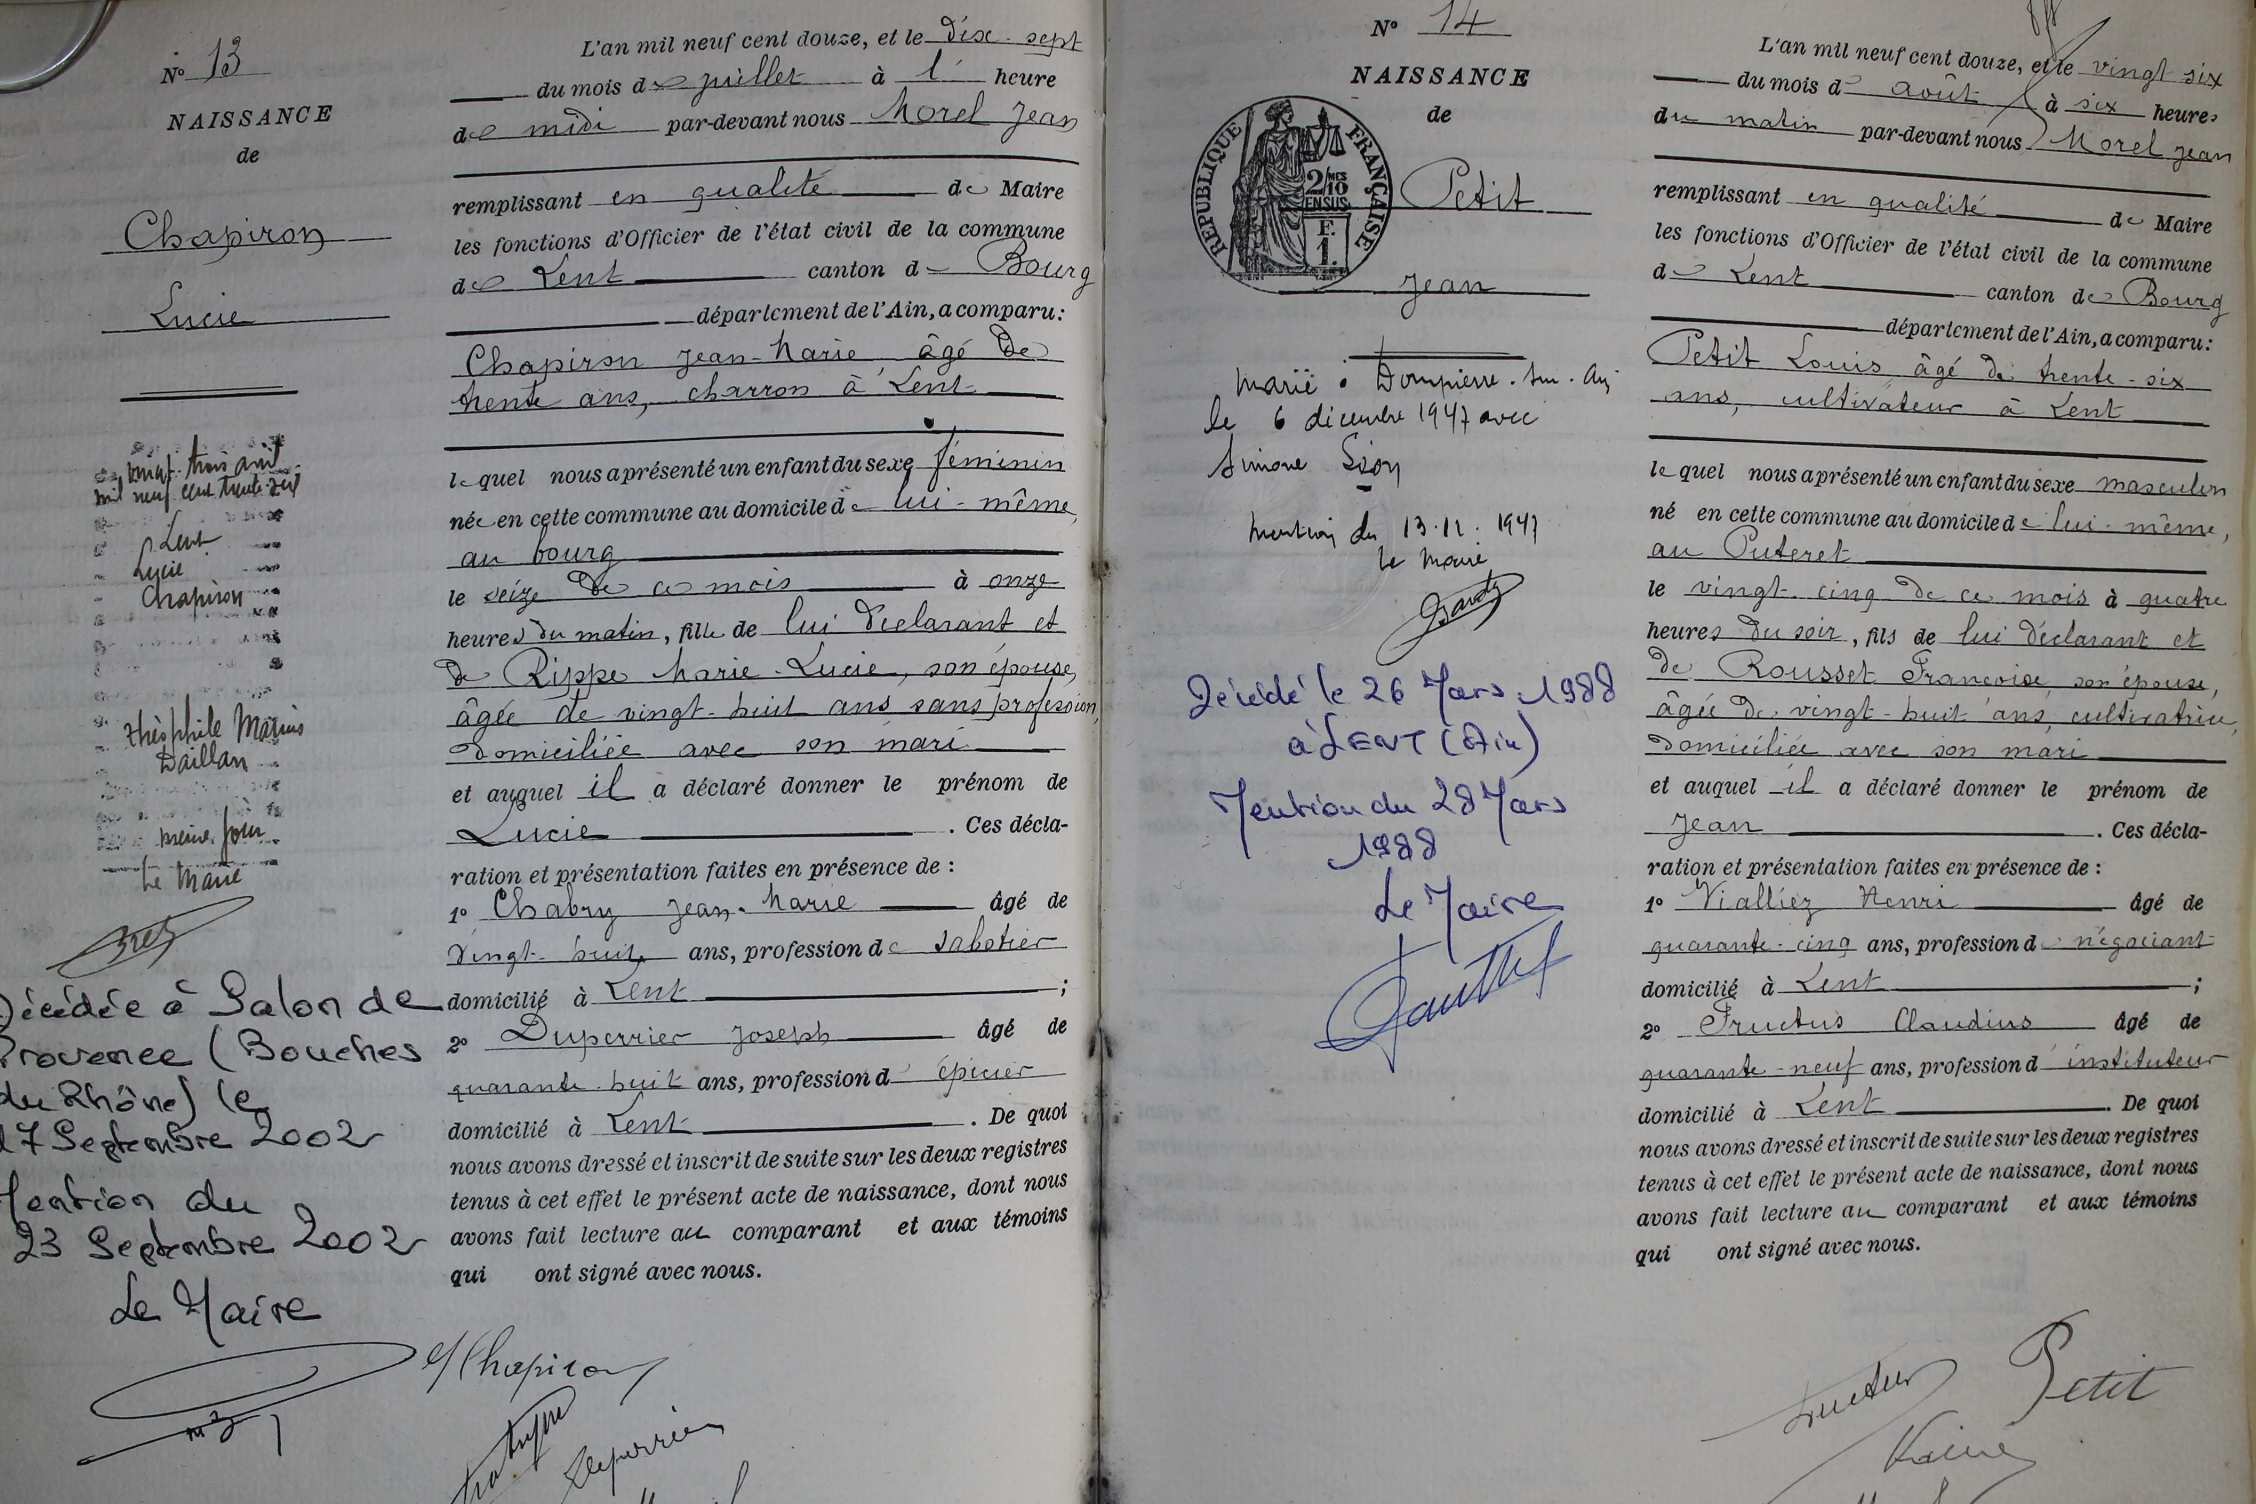 N° 13
NAISSANCE
de
Chapiron
Lucie
vingt-trois avril
mil neuf cent trente
Lent
Lucie
Chapiron
Théophile Marius
Daillan
même jour
Le Maire
Décédée à Salon de
Provence (Bouches
du Rhône) le
17 Septembre 2002
Mention du
23 Septembre 2002
Le Maire
L'an mil neuf cent douze, et le dix-sept
du mois de juillet à 1 heure
de midi par-devant nous Morel Jean
remplissant en qualité de Maire
les fonctions d'Officier de l'état civil de la commune
de Lent canton de Bourg
département de l'Ain, a comparu:
Chapiron Jean-Marie âgé de
trente ans, charron à Lent
lequel nous a présenté un enfant du sexe féminin
née en cette commune au domicile de lui-même,
au bourg
le seize de ce mois à onze
heures du matin, fille de lui déclarant et
de Rippe Marie-Lucie, son épouse,
âgée de vingt-huit ans sans profession,
domiciliée avec son mari
et auquel il a déclaré donner le prénom de
Lucie . Ces décla-
ration et présentation faites en présence de :
1° Chabry Jean-Marie âgé de
vingt-huit ans, profession de sabotier
domicilié à Lent ;
2° Duperrier Joseph âgé de
quarante-huit ans, profession d' épicier
domicilié à Lent . De quoi
nous avons dressé et inscrit de suite sur les deux registres
tenus à cet effet le présent acte de naissance, dont nous
avons fait lecture au comparant et aux témoins
qui ont signé avec nous.
Chapiron
Duperrier
N° 14
NAISSANCE
de
RÉPUBLIQUE FRANÇAISE
2/10MES
EN SUS
F.
1.
Petit
Jean
Marié à Dompierre-sur-
le 6 décembre 1947 avec
Simone
Mention du 13.12.1947
Le Maire
Décédé le 26 Mars 1988
à LENT (Ain)
Mention du 28 Mars
1988
Le Maire
L'an mil neuf cent douze, et le vingt six
du mois d' août à six heures
du matin par-devant nous Morel Jean
remplissant en qualité de Maire
les fonctions d'Officier de l'état civil de la commune
de Lent canton de Bourg
département de l'Ain, a comparu:
Petit Louis âgé de trente-six
ans, cultivateur à Lent
lequel nous a présenté un enfant du sexe masculin
né en cette commune au domicile de lui-même,
au Puteret
le vingt-cinq de ce mois à quatre
heures du soir, fils de lui déclarant et
de Rousset Françoise son épouse,
âgée de vingt-huit ans, cultivatrice,
domiciliée avec son mari
et auquel il a déclaré donner le prénom de
Jean . Ces décla-
ration et présentation faites en présence de :
1° Vialliez Henri âgé de
quarante-cinq ans, profession de négociant
domicilié à Lent ;
2° Fructus Claudius âgé de
quarante-neuf ans, profession d' instituteur
domicilié à Lent . De quoi
nous avons dressé et inscrit de suite sur les deux registres
tenus à cet effet le présent acte de naissance, dont nous
avons fait lecture au comparant et aux témoins
qui ont signé avec nous.
Fructus
Petit